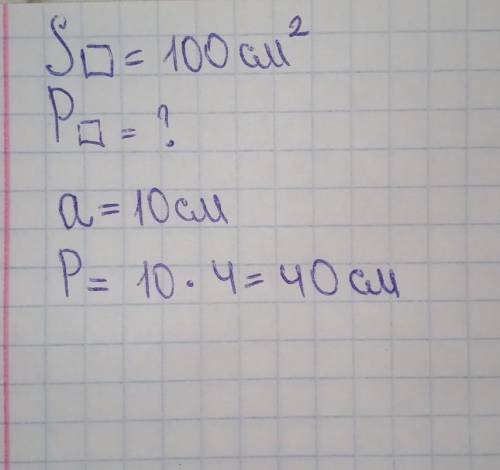 S□ = 100 см²
P□ = ?
a = 10 см
P = 10 · 4 = 40 см